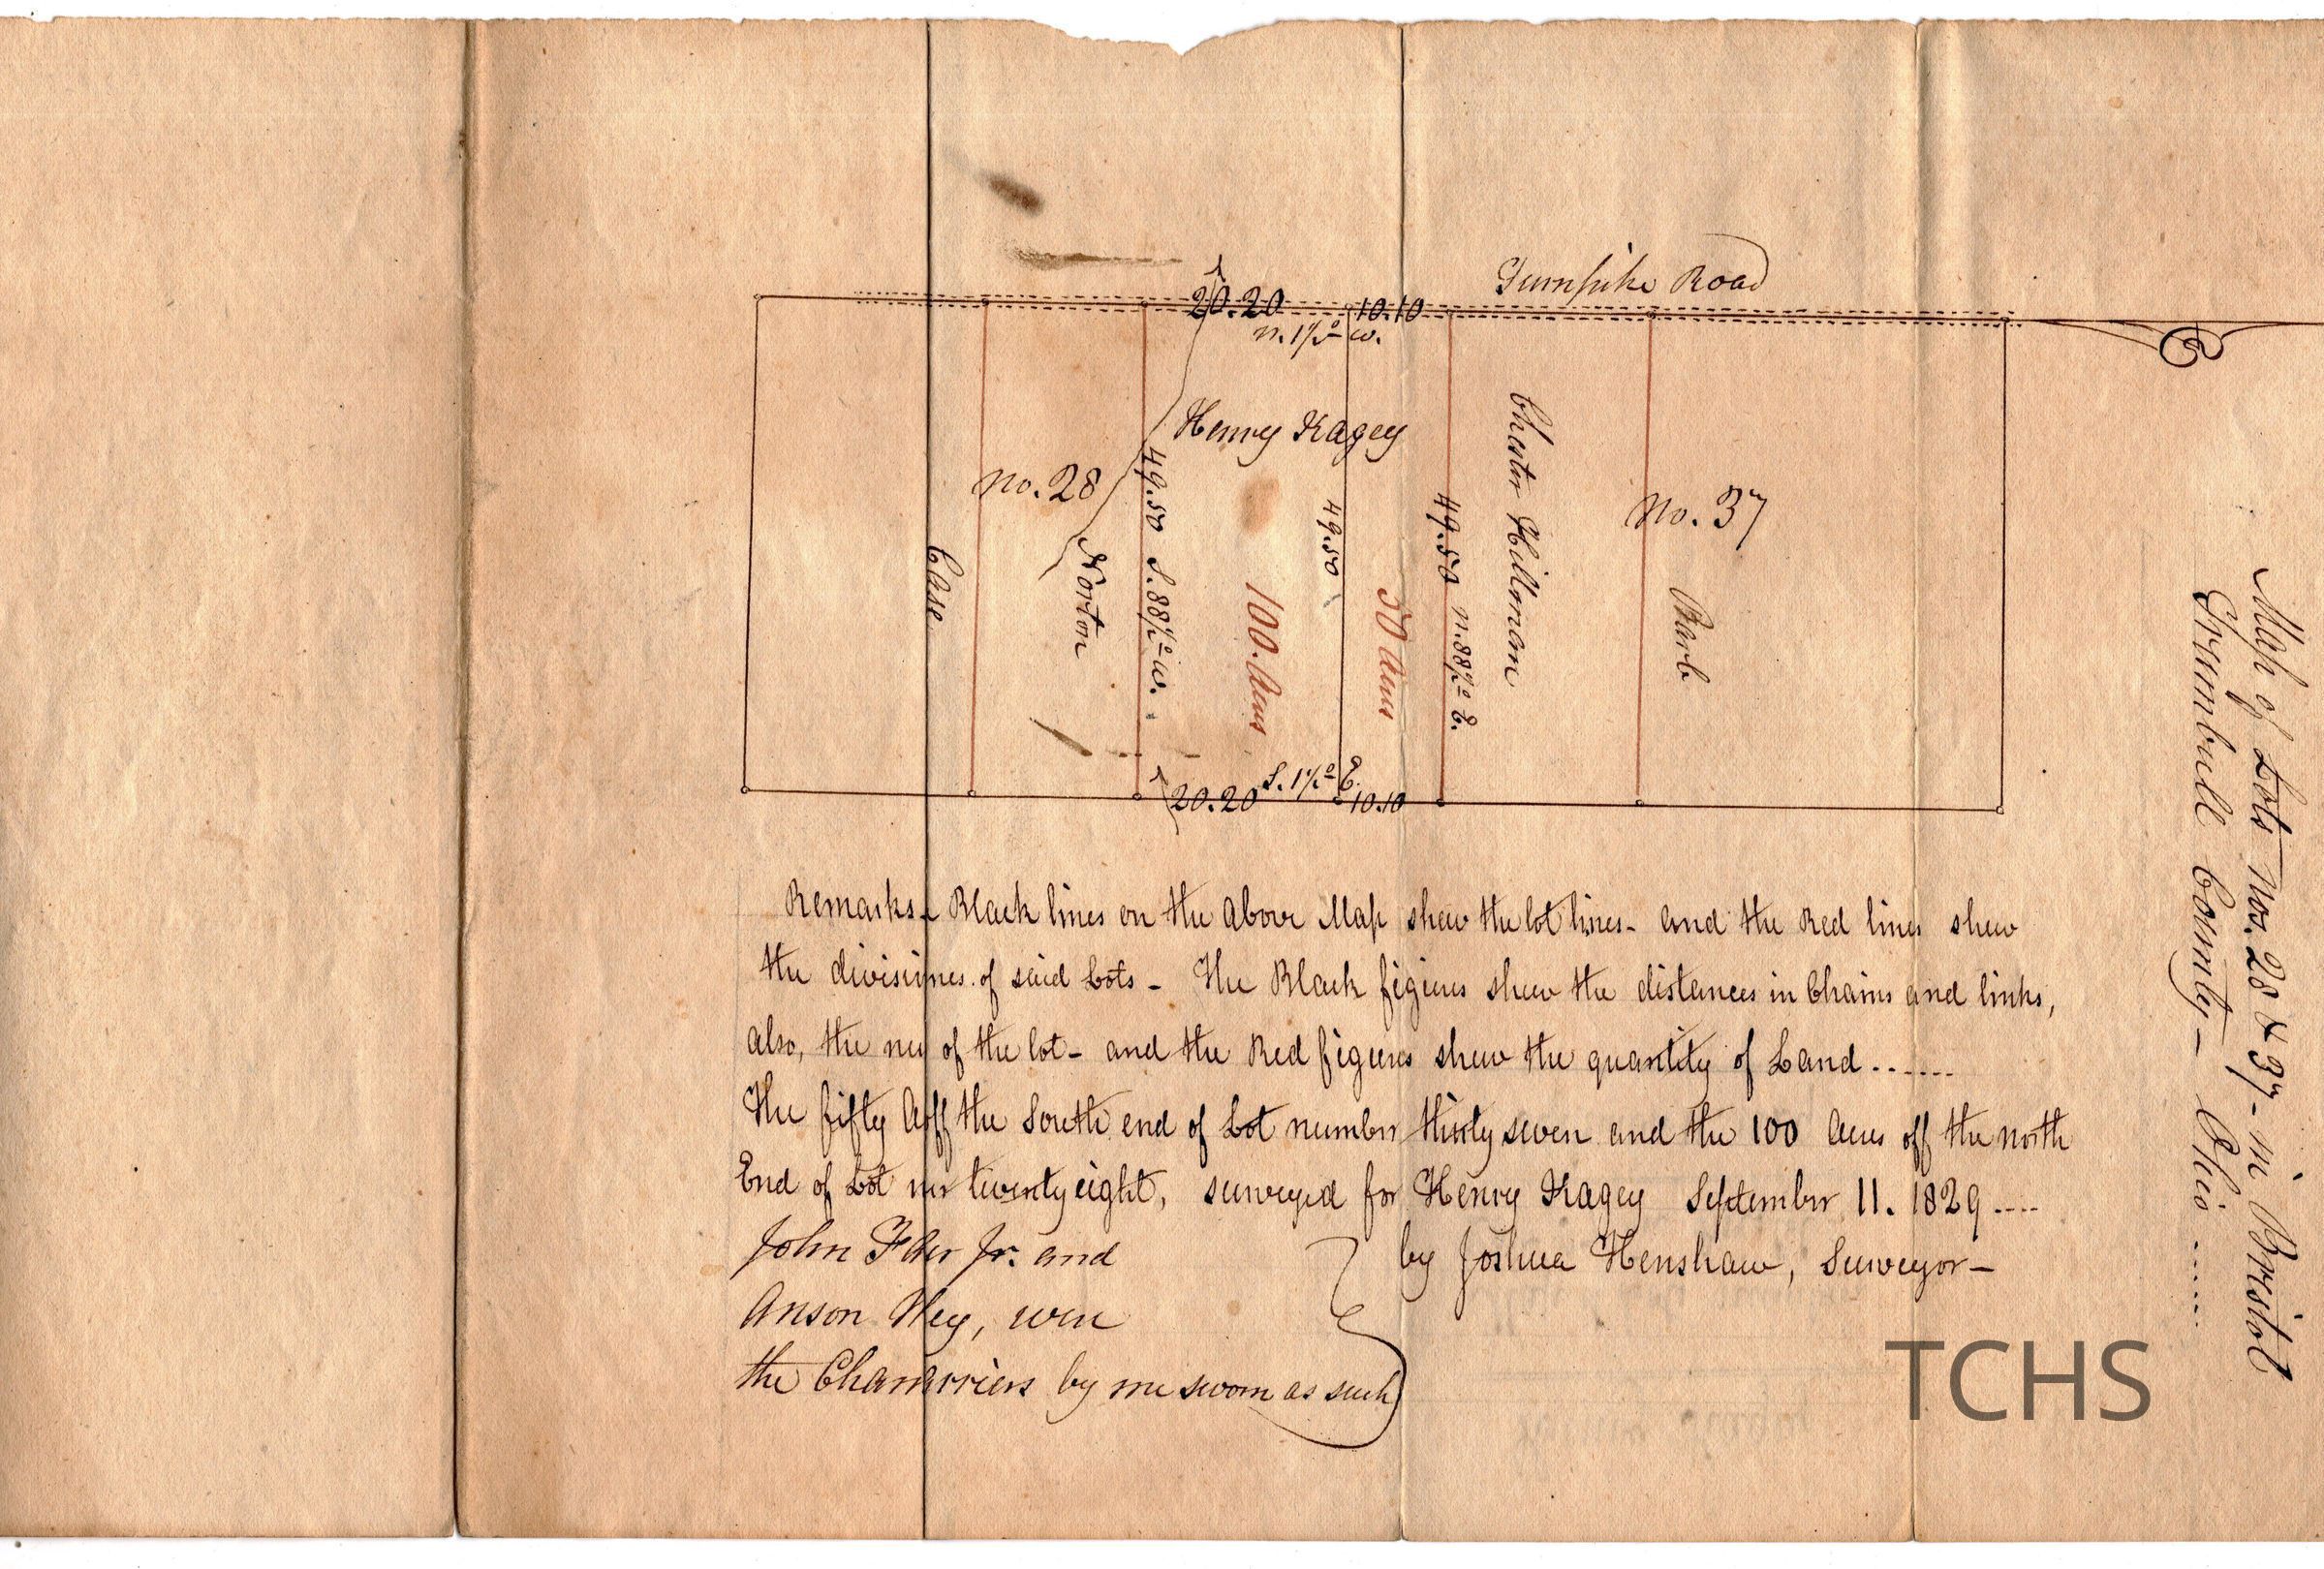 Turnpike Road
20.20
10.10
N. 1½° W.
Henry Kagey
No. 28
No. 37
Case
Norton
49.50 S. 88½° W.
100. Acres
49.50
50 Acres
49.50 N. 88½° E.
Chester Hillman
Barb
S. 1½° E.
20.20
10.10
Map of Lots Nos. 28 & 37 - in Bristol
Trumbull County - Ohio ......
Remarks - Black lines on the above Map shew the lot lines - and the Red lines shew
the divisi nes of said Lots - The Black figures shew the distances in Chains and links,
also, the of the lot - and the Red figures shew the quantity of Land .......
The fifty off the South end of Lot number thirty seven and the 100 Acres off the north
End of Lot twenty eight, surveyed for Henry Kagey September 11. 1829 ....
by Joshua Henshaw, Surveyor -
John Jr. and
Anson were
the by me sworn as such
TCHS